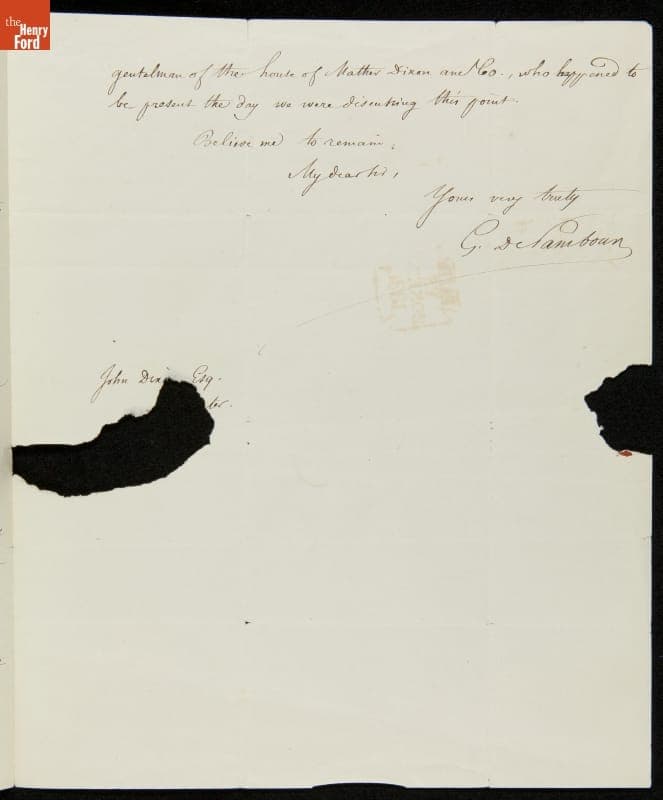 the
Henry
Ford
gentelman of the house of Mather Dixon and Co., who happened to
be present the day we were discuthing this point.
Believe me to remain,
My dear Sir,
Yours very truly
G. De
John Esq.
ter.